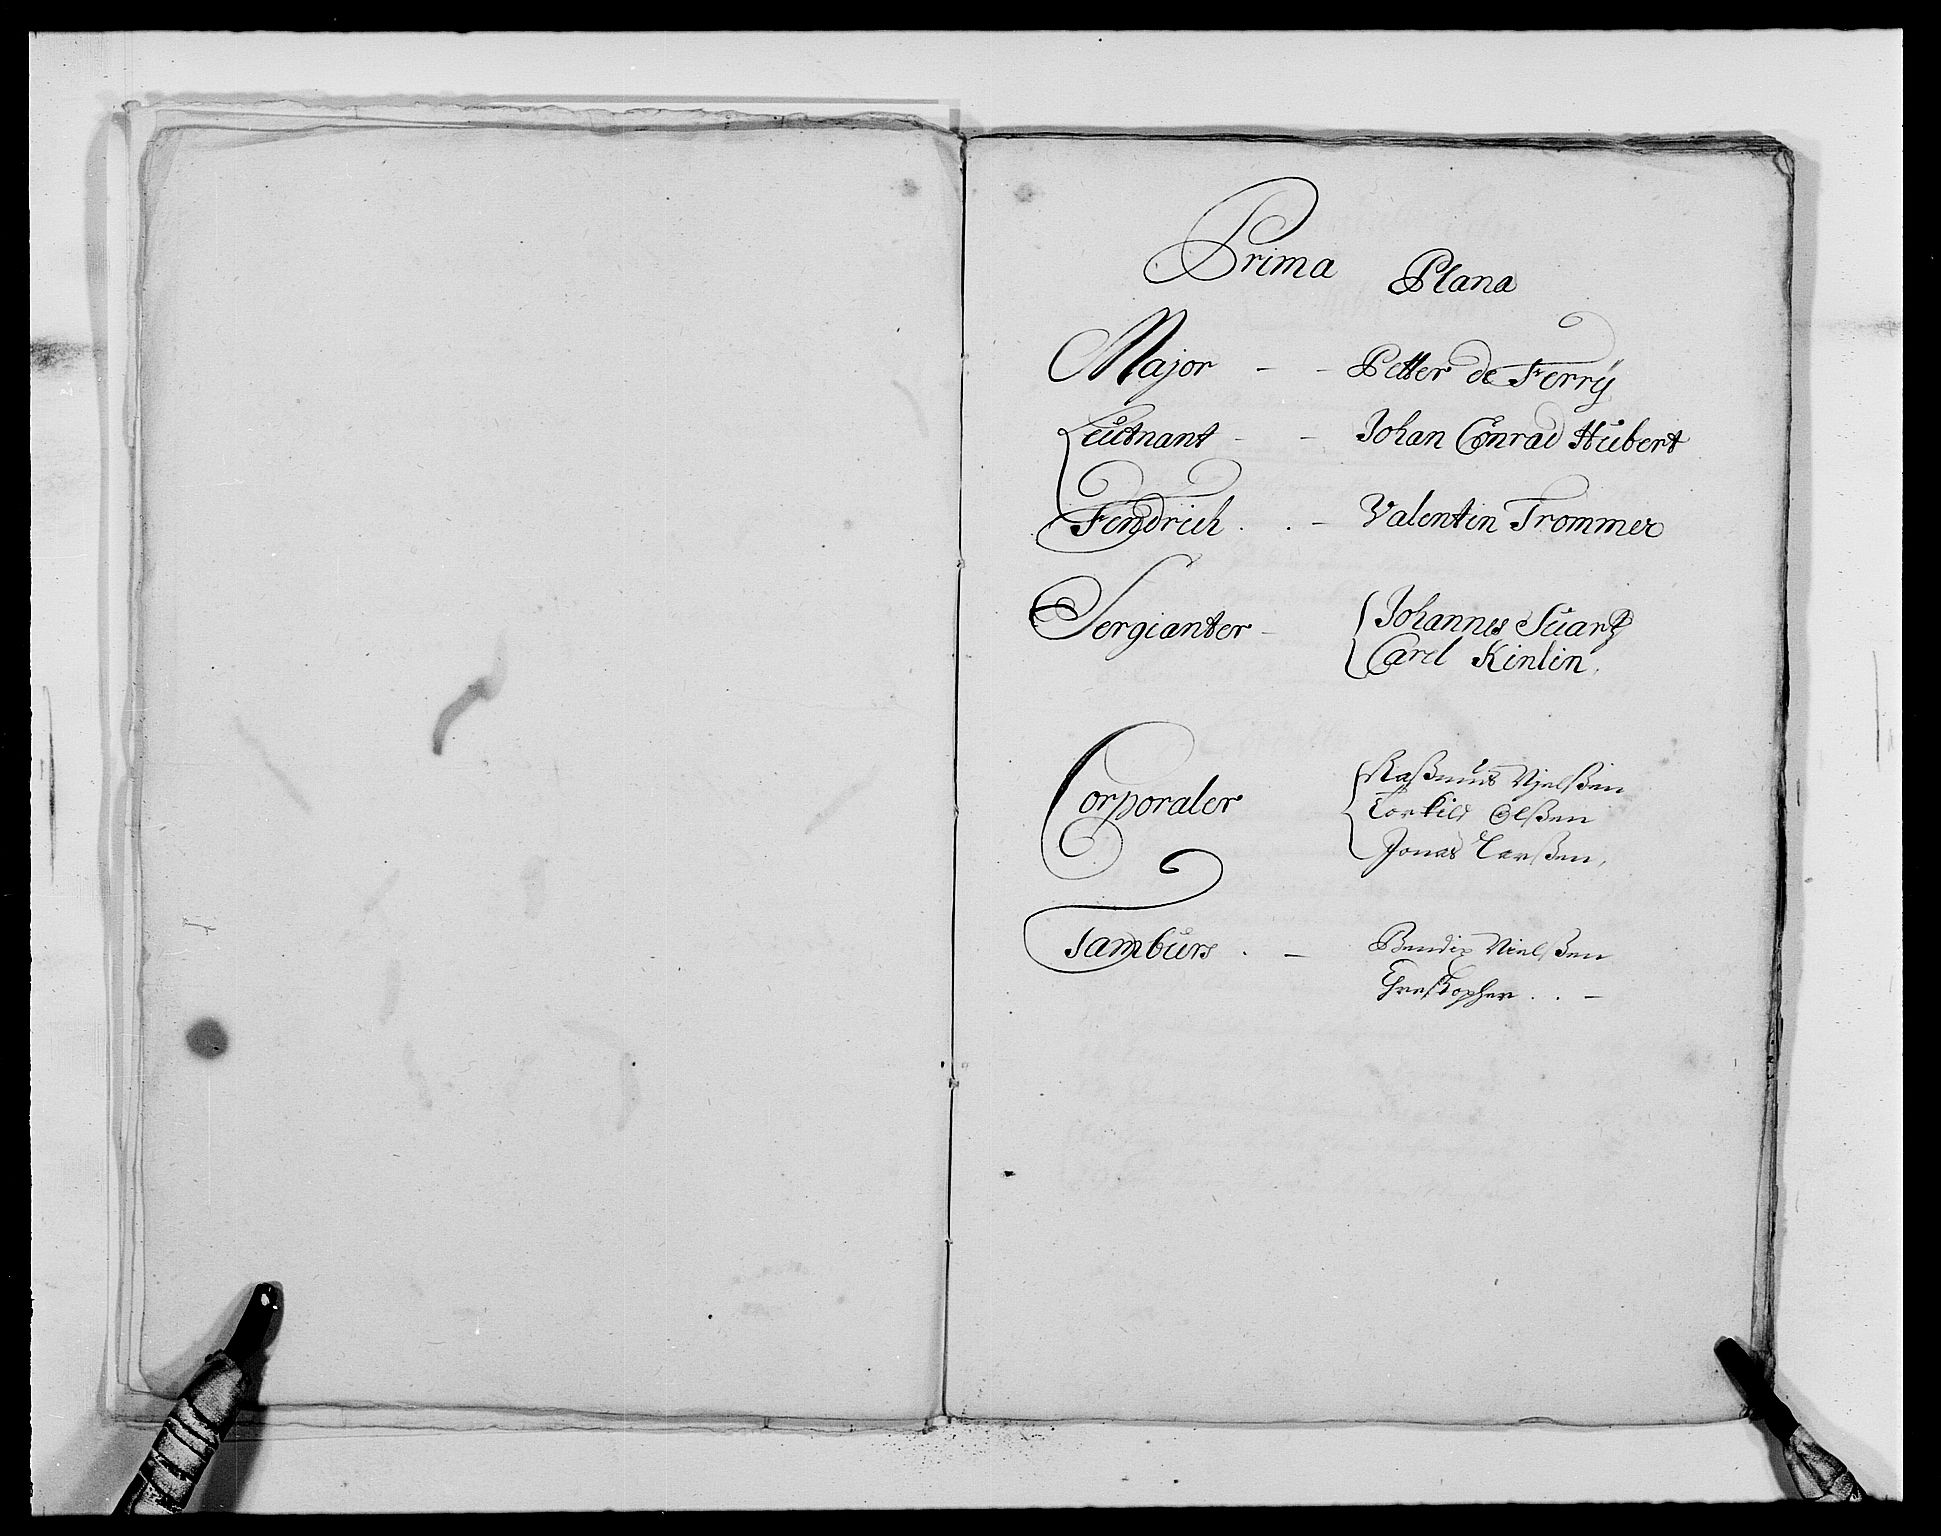 Prima Plana
Major - - Petter de Ferrÿ
Leutnant - - Johan Conrad Hubert
Fendrich . . - Valentin Trommer
Sergianter - Johannes Suartz
Carel Kinlin.
Corporaler
Raßmus Njelßen
Torkild Olßen
Jonas Larßen,
Tamburs . - Bendix Nielßen
Chrestopher . . -